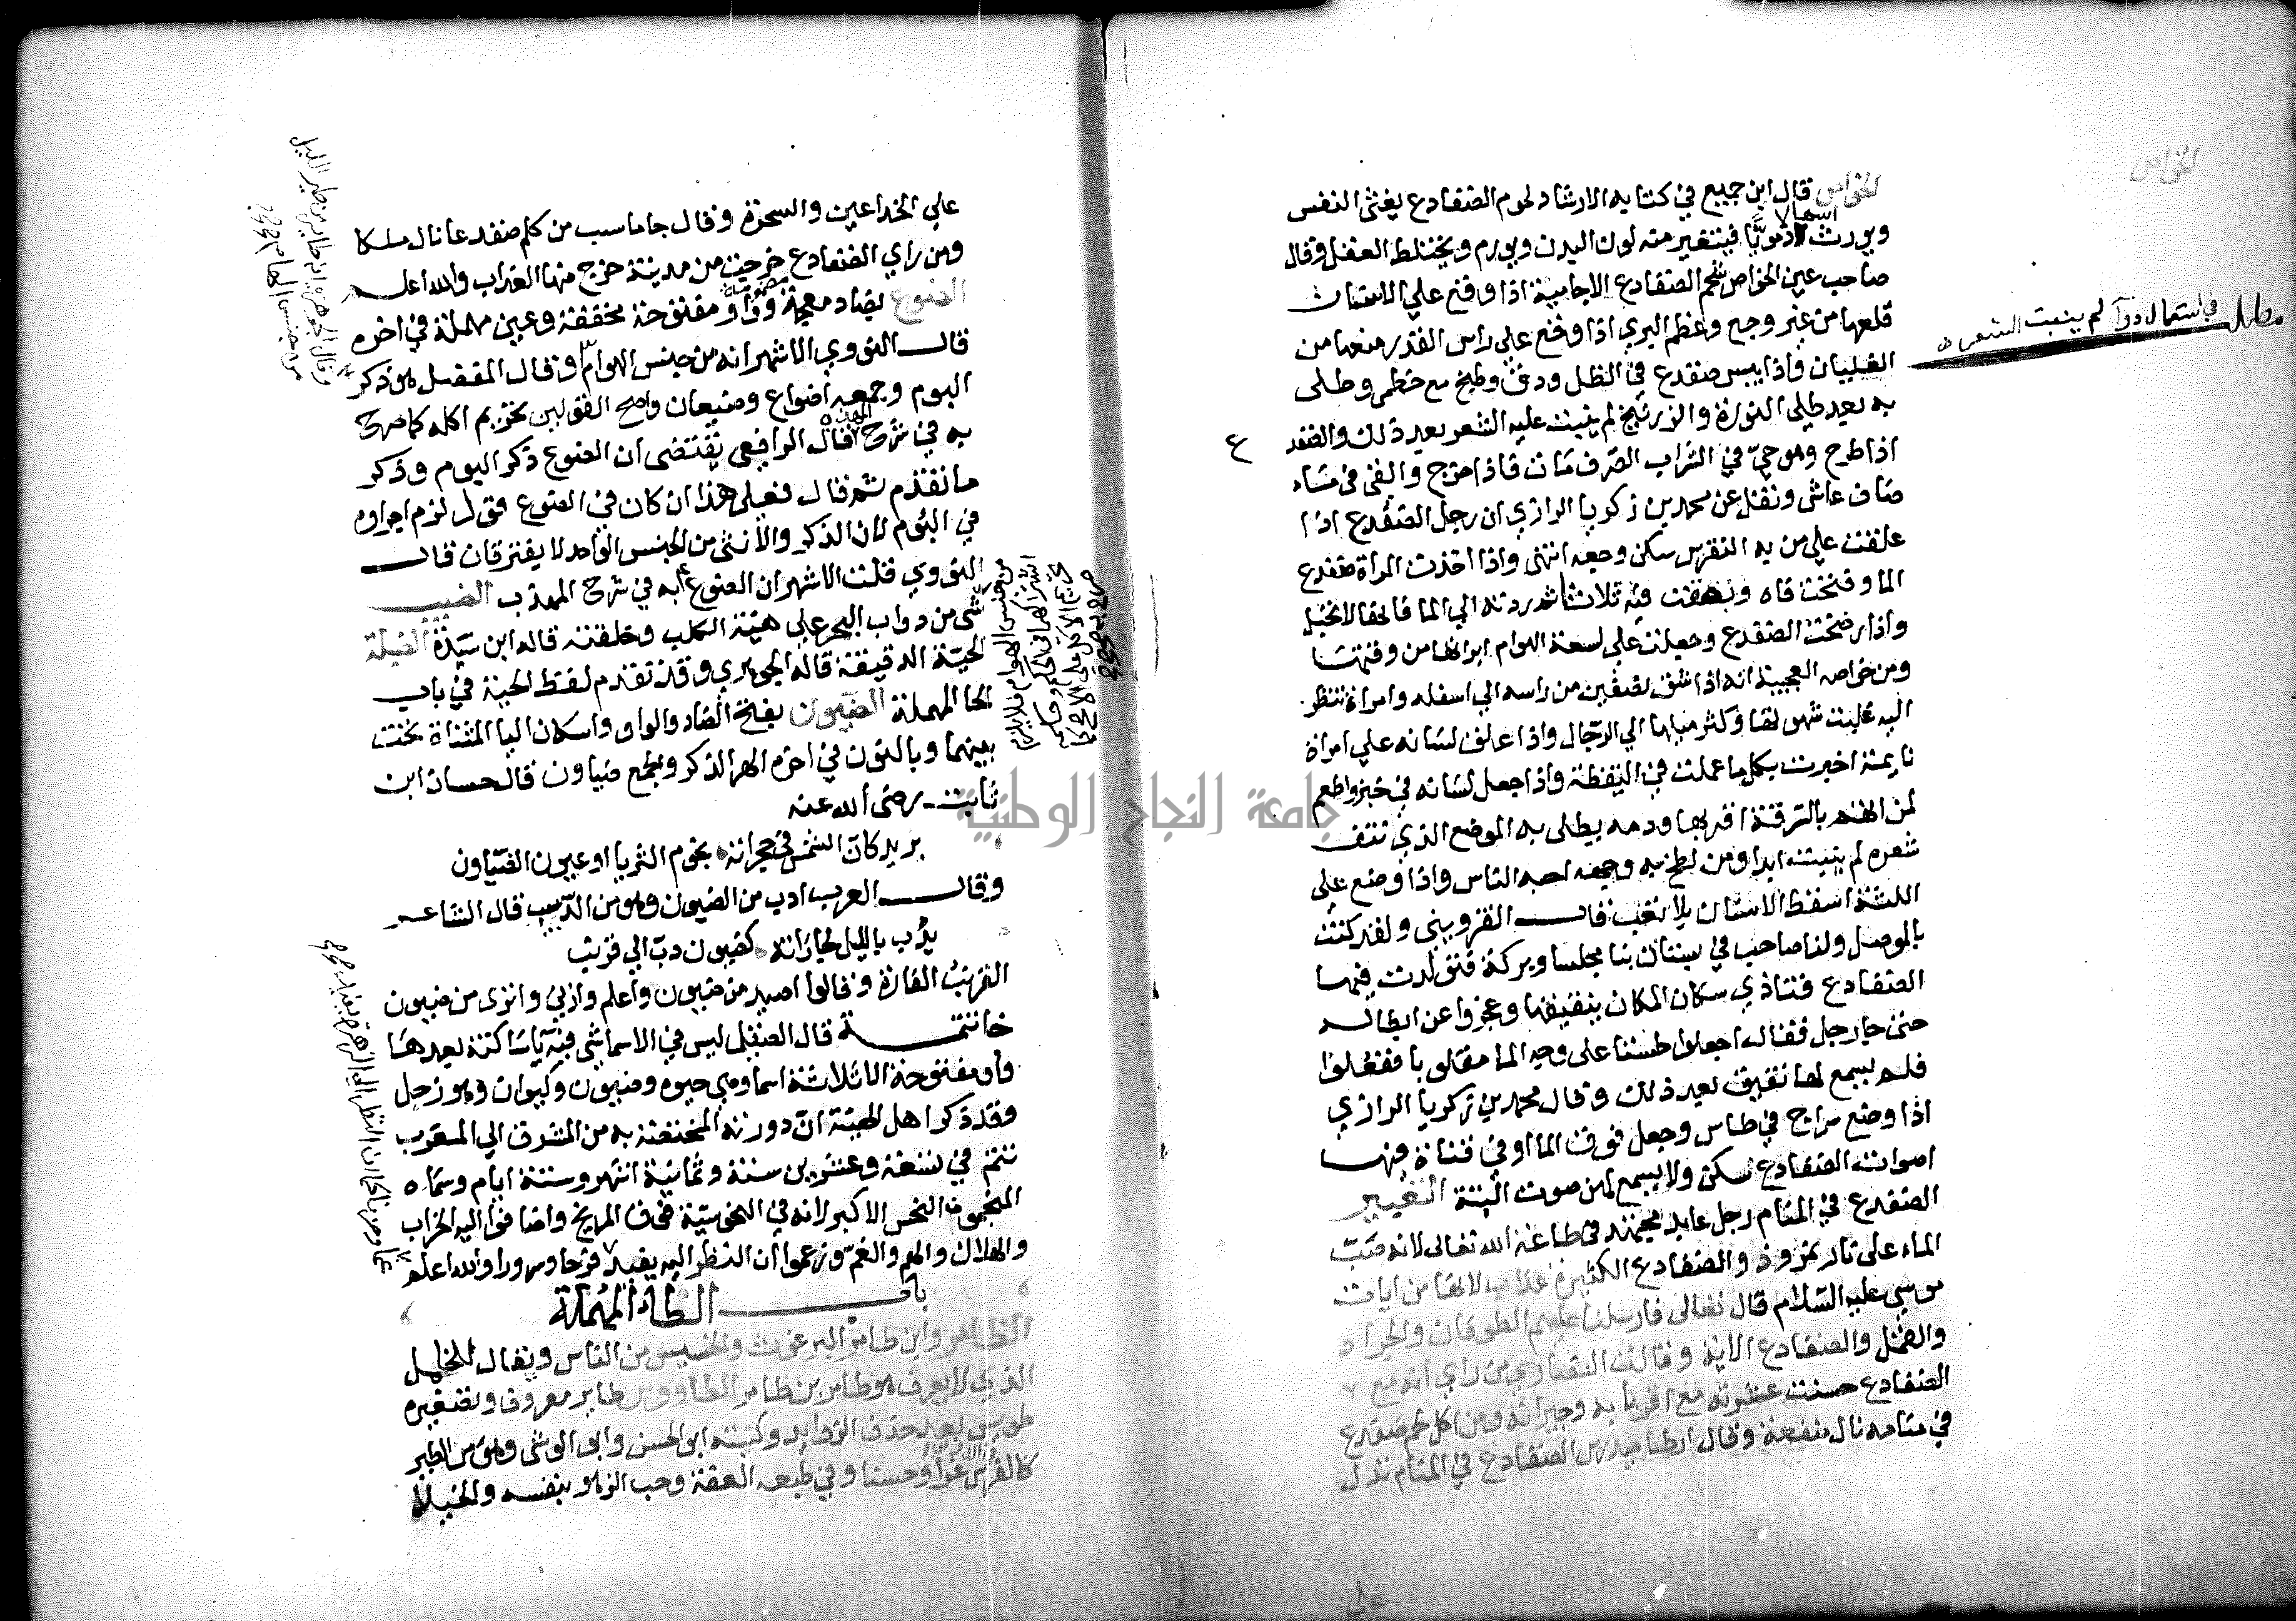 الخواص
الخواص قال ابن جميع في كتابه الارشاد لحوم الضفادع يغثي النفس
ويورث اسهالا دمويا فيتغير منه لون البدن ويورم ويختلط العقل وقال
صاحب عين الخواص شحم الضفادع الاجامية اذا وضع علي الاسنان
قلعها من غير وجع وعظم البري اذا وضع علي راس القدر منعها من
الغليان واذا يبس ضفدع في الظل ودق وطبخ مع خطمي وطلي
به بعد طلي النورة والزرنيخ لم ينبت عليه الشعر بعد ذلك والضفد
ع
اذا طرح وهو حي في الشراب الصرف مات فاذا اخرج والقي في ماء
صاف عاش ونقل عن محمد بن زكريا الرازي ان رجل الضفدع اذا
علقت علي من به النقرس سكن وجعه انتهي واذا اخذت المراة ضفدع
الما وفتحت فاه وبصقت فيه ثلاثا ثم ردته الي الما فانها لا تحبل
واذا رضخت الضفدع وجعلت علي لسعة الهوام ابراتها من وقتها
ومن خواصه العجيبة انه اذا شق نصفين من راسه الي اسفله وامراة تنظر
اليه غلبت شهوتها وكثر ميلها الي الرجال واذا علق لسانه علي امراة
نايمة اخبرت بكل ما عملت في اليقظة واذا جعل لسانه في خبز واطعم
لمن اتهم بالسرقة اقر بها ودمه يطلي به الموضع الذي نتف
شعره لم ينبت ابدا ومن لطخ به وجهه احبه الناس واذا وضع علي
اللثة اسقط الاسنان بلا تعب قال القزويني ولقد كنت
بالموصل ولنا صاحب في بستان بنا مجلسا وبركة فتولدت فيها
الضفادع فتاذي سكان المكان بنقيقها وعجزوا عن ابطاله
حتي جا رجل فقال اجعلوا طستا علي وجه الما مقلوبا ففعلوا
فلم يسمع لها نقيق بعد ذلك وقال محمد بن زكريا الرازي
اذا وضع سراج في طاس وجعل فوق الما او في قناة فيها
اصوات الضفادع سكن ولا يسمع لهن صوت البتة التعبير
الضفدع في المنام رجل عابد مجتهد في طاعة الله تعالي لانه صب
الماء علي نار نمروذ والضفادع الكثيرة عذاب لانها من ايات
موسي عليه السلام قال تعالي فارسلنا عليهم الطوفان والجراد
والقمل والضفادع الاية وقالت النصاري من راي انه مع
الضفادع حسنت عشرته مع اقربايه وجيرانه ومن اكل لحم ضفدع
في منامه نال منفعة وقال ارطاميدرس الضفادع في المنام تدل
علي
مطلب في استعمال دوآ لم ينبت الشعر
علي الخداعين والسحرة وقال جاماسب من كلم ضفدعا نال ملكا
ومن راي الضفادع خرجت من مدينة خرج منها العذاب والله اعلم
الضوع بضاد معجمة مضمومة وواو مفتوحة مخففة وعين مهملة في اخره
قال النووي الاشهر انه من جنس الهوام وقال المفضل هو ذكر
البوم وجمعه اضواع وضيعان واصح القولين تحريم اكله كما صرح
به في شرح المهذب قال الرافعي يقتضي ان الضوع ذكر البوم وذكر
ما تقدم ثم قال فعلي هذا ان كان في الضوع قول لزم اجراوه
في البوم لان الذكر والانثي من الجنس الواحد لا يفترقان قال
النووي قلت الاشهر ان الضوع به في شرح المهذب الضيب
شي من دواب البحر علي هيئة الكلب وخلقته قاله ابن سيدة الضيلة
الحية الدقيقة قاله الجوهري وقد تقدم لفظ الحية في باب
الحا المهملة الضيون بفتح الضاد والواو واسكان اليا المثناة تحت
بينهما وبالنون في اخره الهر الذكر وتجمع ضياون قال حسان ابن
ثابت رضي الله عنه
يريد كان الشمس في حجراته نجوم الثريا او عيون الضياون
وقال العرب ادب من الضيون وهو من الدبيب قال الشاعر
يدب بالليل لجاراته كضيون دب الي قرنب
القرنب الفارة وقالوا اصيد من ضيون واعلم وازني وانزي من ضيون
خاتمة قال الصقلي ليس في الاسما شي فيه يا ساكنة بعدها
واو مفتوحة الا ثلاثة اسما وهي حيوه وضيون وكيوان وهو زحل
وقد ذكر اهل الهيئة ان دورته المختصة به من المشرق الي المغرب
تتم في تسعة وعشرين سنة وثمانية اشهر وستة ايام وسماه
المنجمون النحس الاكبر لانه في النحوسية فوق المريخ واضافوا اليه الخراب
والهلاك والهم والغم وزعموا ان النظر اليه يفيد فرحا وسرورا والله اعلم
باب الطاء المهملة
الطامر وابن طامر البرغوث والخسيس من الناس ويقال للخطل
الذي لا يعرف هو طامر بن طامر الطاووس طاير معروف وتصغيره
طويس بعد حذف الزوايد وكنيته ابي الحسن وابي الوشي وهو من الطير
كالفرس من الدواب عزا وحسنا وفي طبعه العفة وحب الزهو بنفسه والخيلا
وقال الجوهري انه طاير من طير الليل
من جنس الهام صح
من جنس الهوام فلا يلزم
اشتراكهما في الحكم وحاصله
تحريم الاكل علي الاصح كما
صرح به صح
جامعة النجاح الوطنية